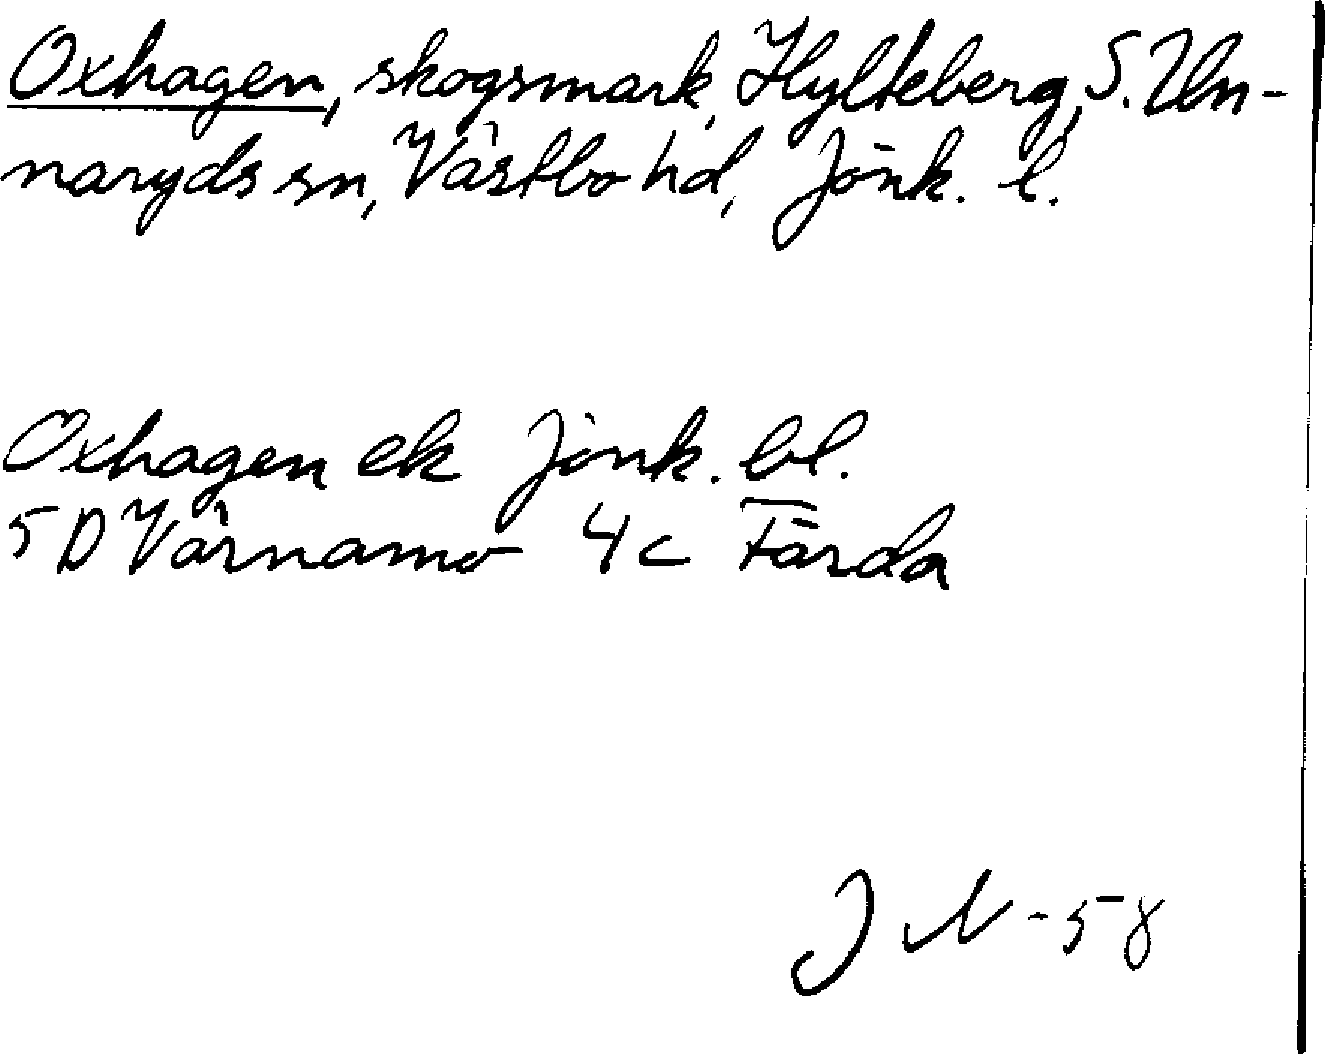 Oxhagen, skogsmark, Hylteberg, S. Un-
naryds sn, Västbo hd, Jönk. l.
Oxhagen ek Jönk. bl.
5D Värnamo 4c Färda
J N-58